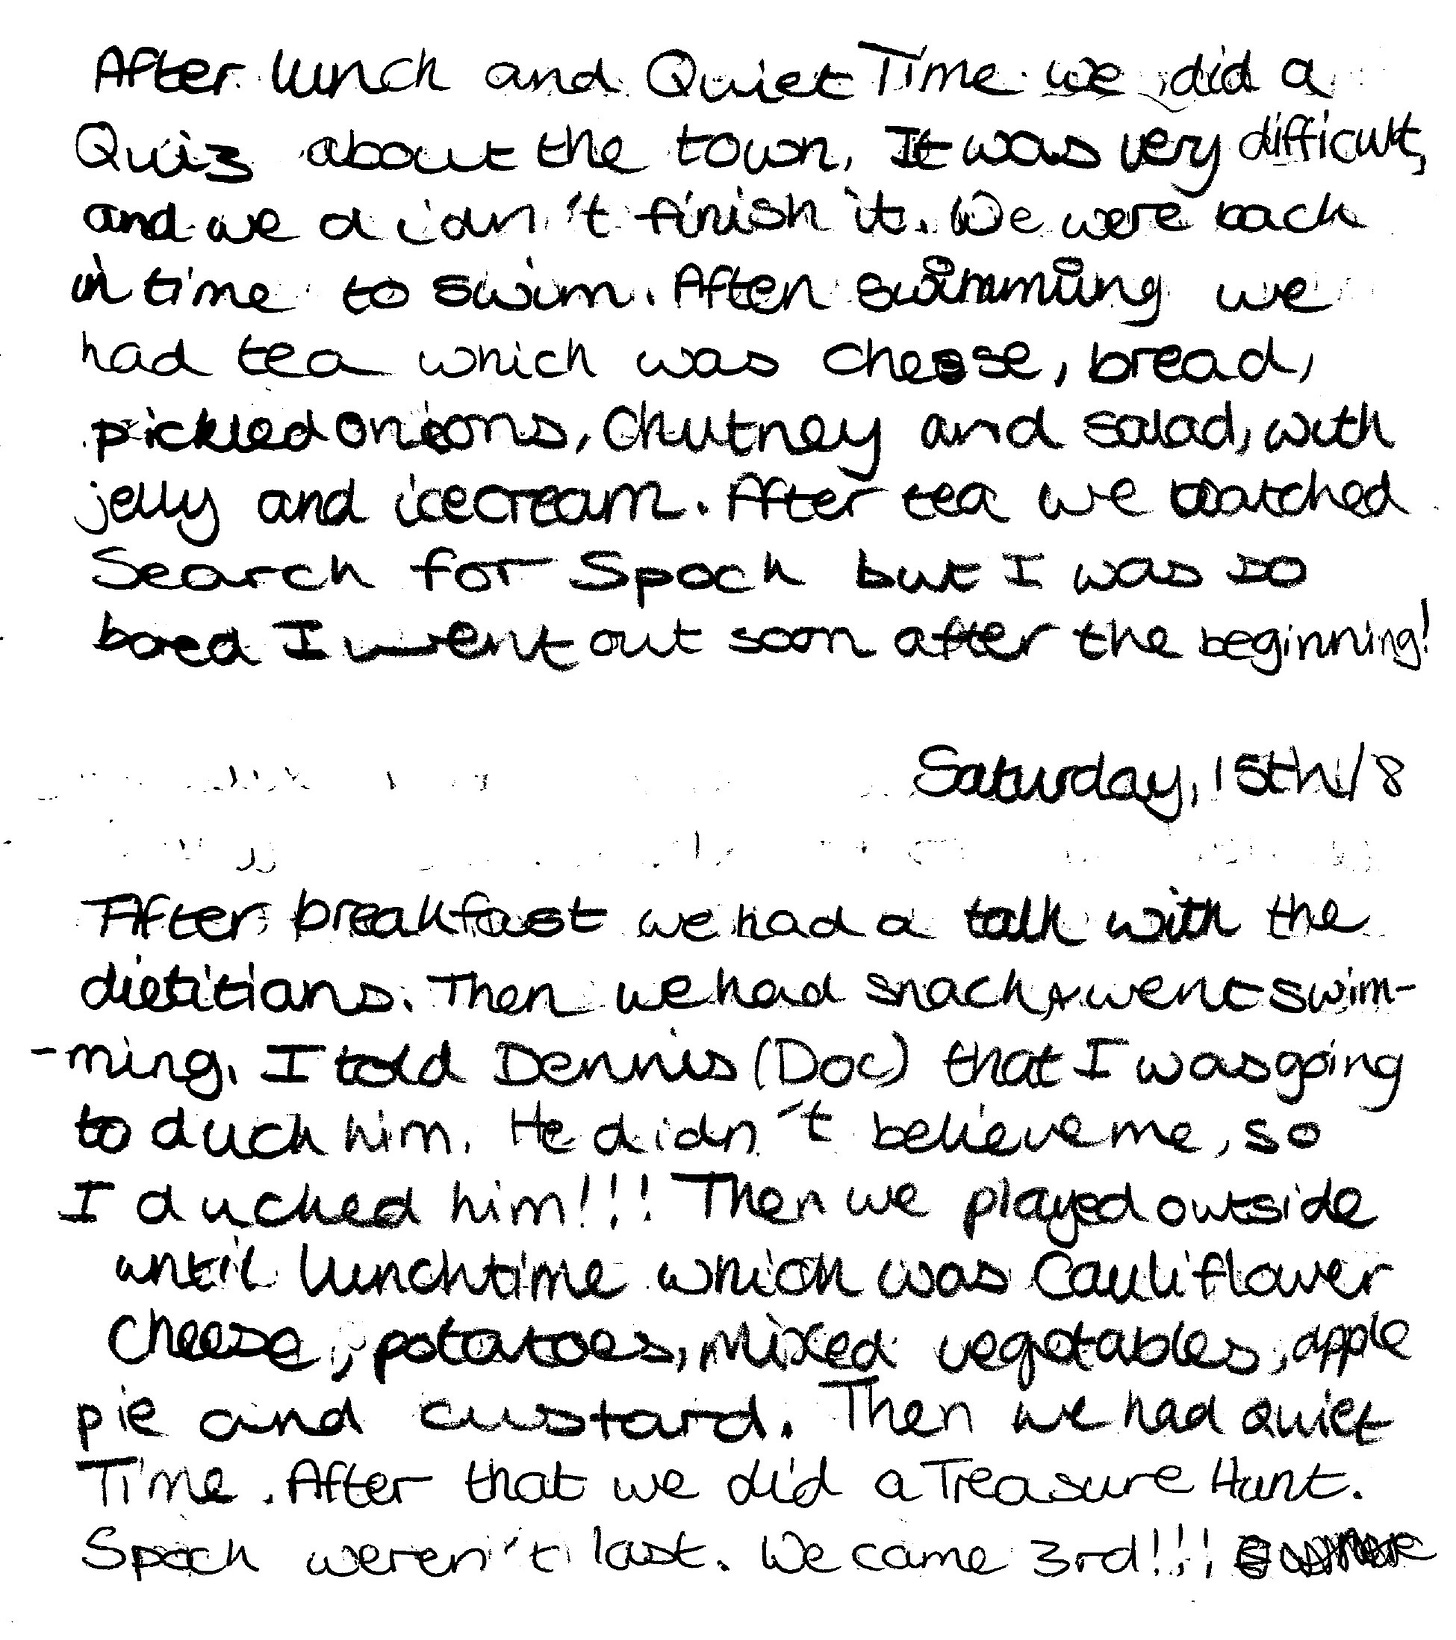 After lunch and Quiet Time we did a
Quiz about the town. It was very difficult,
and we didn't finish it. We were back
in time to swim. After swimming we
had tea which was cheese, bread,
pickled onions, Chutney and salad, with
jelly and icecream. After tea we watched
Search for Spock but I was so
bored I went out soon after the beginning!
Saturday, 15th/8
After breakfast we had a talk with the
dietitians. Then we had snack, & went swim-
-ming. I told Dennis (Doc) that I was going
to duck him. He didn't believe me, so
I ducked him!!! Then we played outside
until lunchtime which was Cauliflower
Cheese, potatoes, mixed vegetables, apple
pie and custard. Then we had quiet
Time. After that we did a Treasure Hunt.
Spock weren't last. We came 3rd!!!